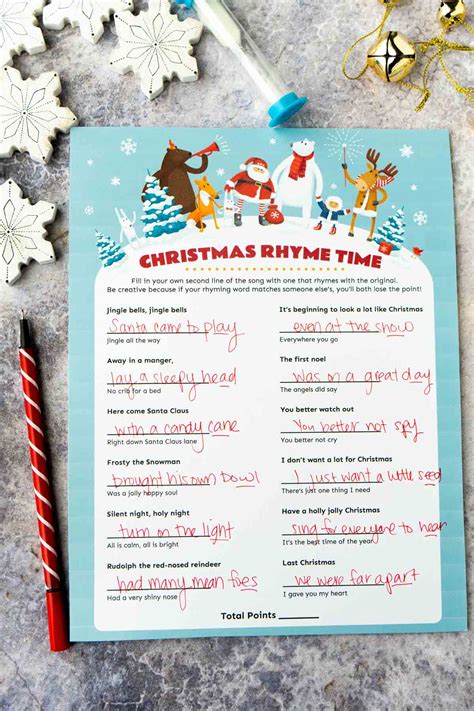 CHRISTMAS RHYME TIME
Fill in your own second line of the song with one that rhymes with the original.
Be creative because if your rhyming word matches someone else's, you'll both lose the point!
Jingle bells, jingle bells
Santa came to play
Jingle all the way
Away in a manger,
lay a sleepy head
No crib for a bed
Here come Santa Claus
with a candy cane
Right down Santa Claus lane
Frosty the Snowman
brought his own bowl
Was a jolly happy soul
Silent night, holy night
turn on the light
All is calm, all is bright
Rudolph the red-nosed reindeer
had many mean foes
Had a very shiny nose
It's beginning to look a lot like Christmas
even at the show
Everywhere you go
The first noel
was on a great day
The angels did say
You better watch out
You better not spy
You better not cry
I don't want a lot for Christmas
I just want a little seed
There's just one thing I need
Have a holly jolly Christmas
sing for everyone to hear
It's the best time of the year
Last Christmas
we were far apart
I gave you my heart
Total Points